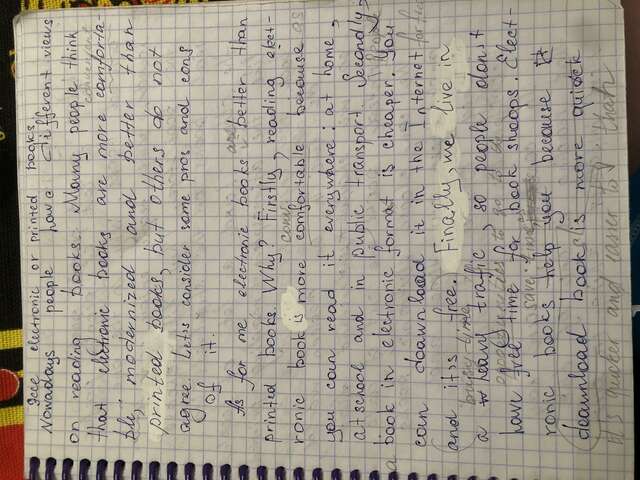 electronic or printed books
Nowadays people have different views
on reading books. Many people think
that elktronic books are more comforta-
ble, modernized and better than
printed books, but others do not
agree let's consider same pros and cons
of it.
As for me electronic books are better than
printed books. Why? Firstly, reading elekt-
ronic book is more comfortable because as
you can read it everywhere: at home,
at school and in public transport. Secondly,
a book in electronic format is cheaper. You
can downland it in the Internet
and it's free. Finally, we live in
a heavy traffic, so people donst
have free time for book shoops. Elect-
ronic books help you because it
downland books is more quick
It's quicker and easier to than